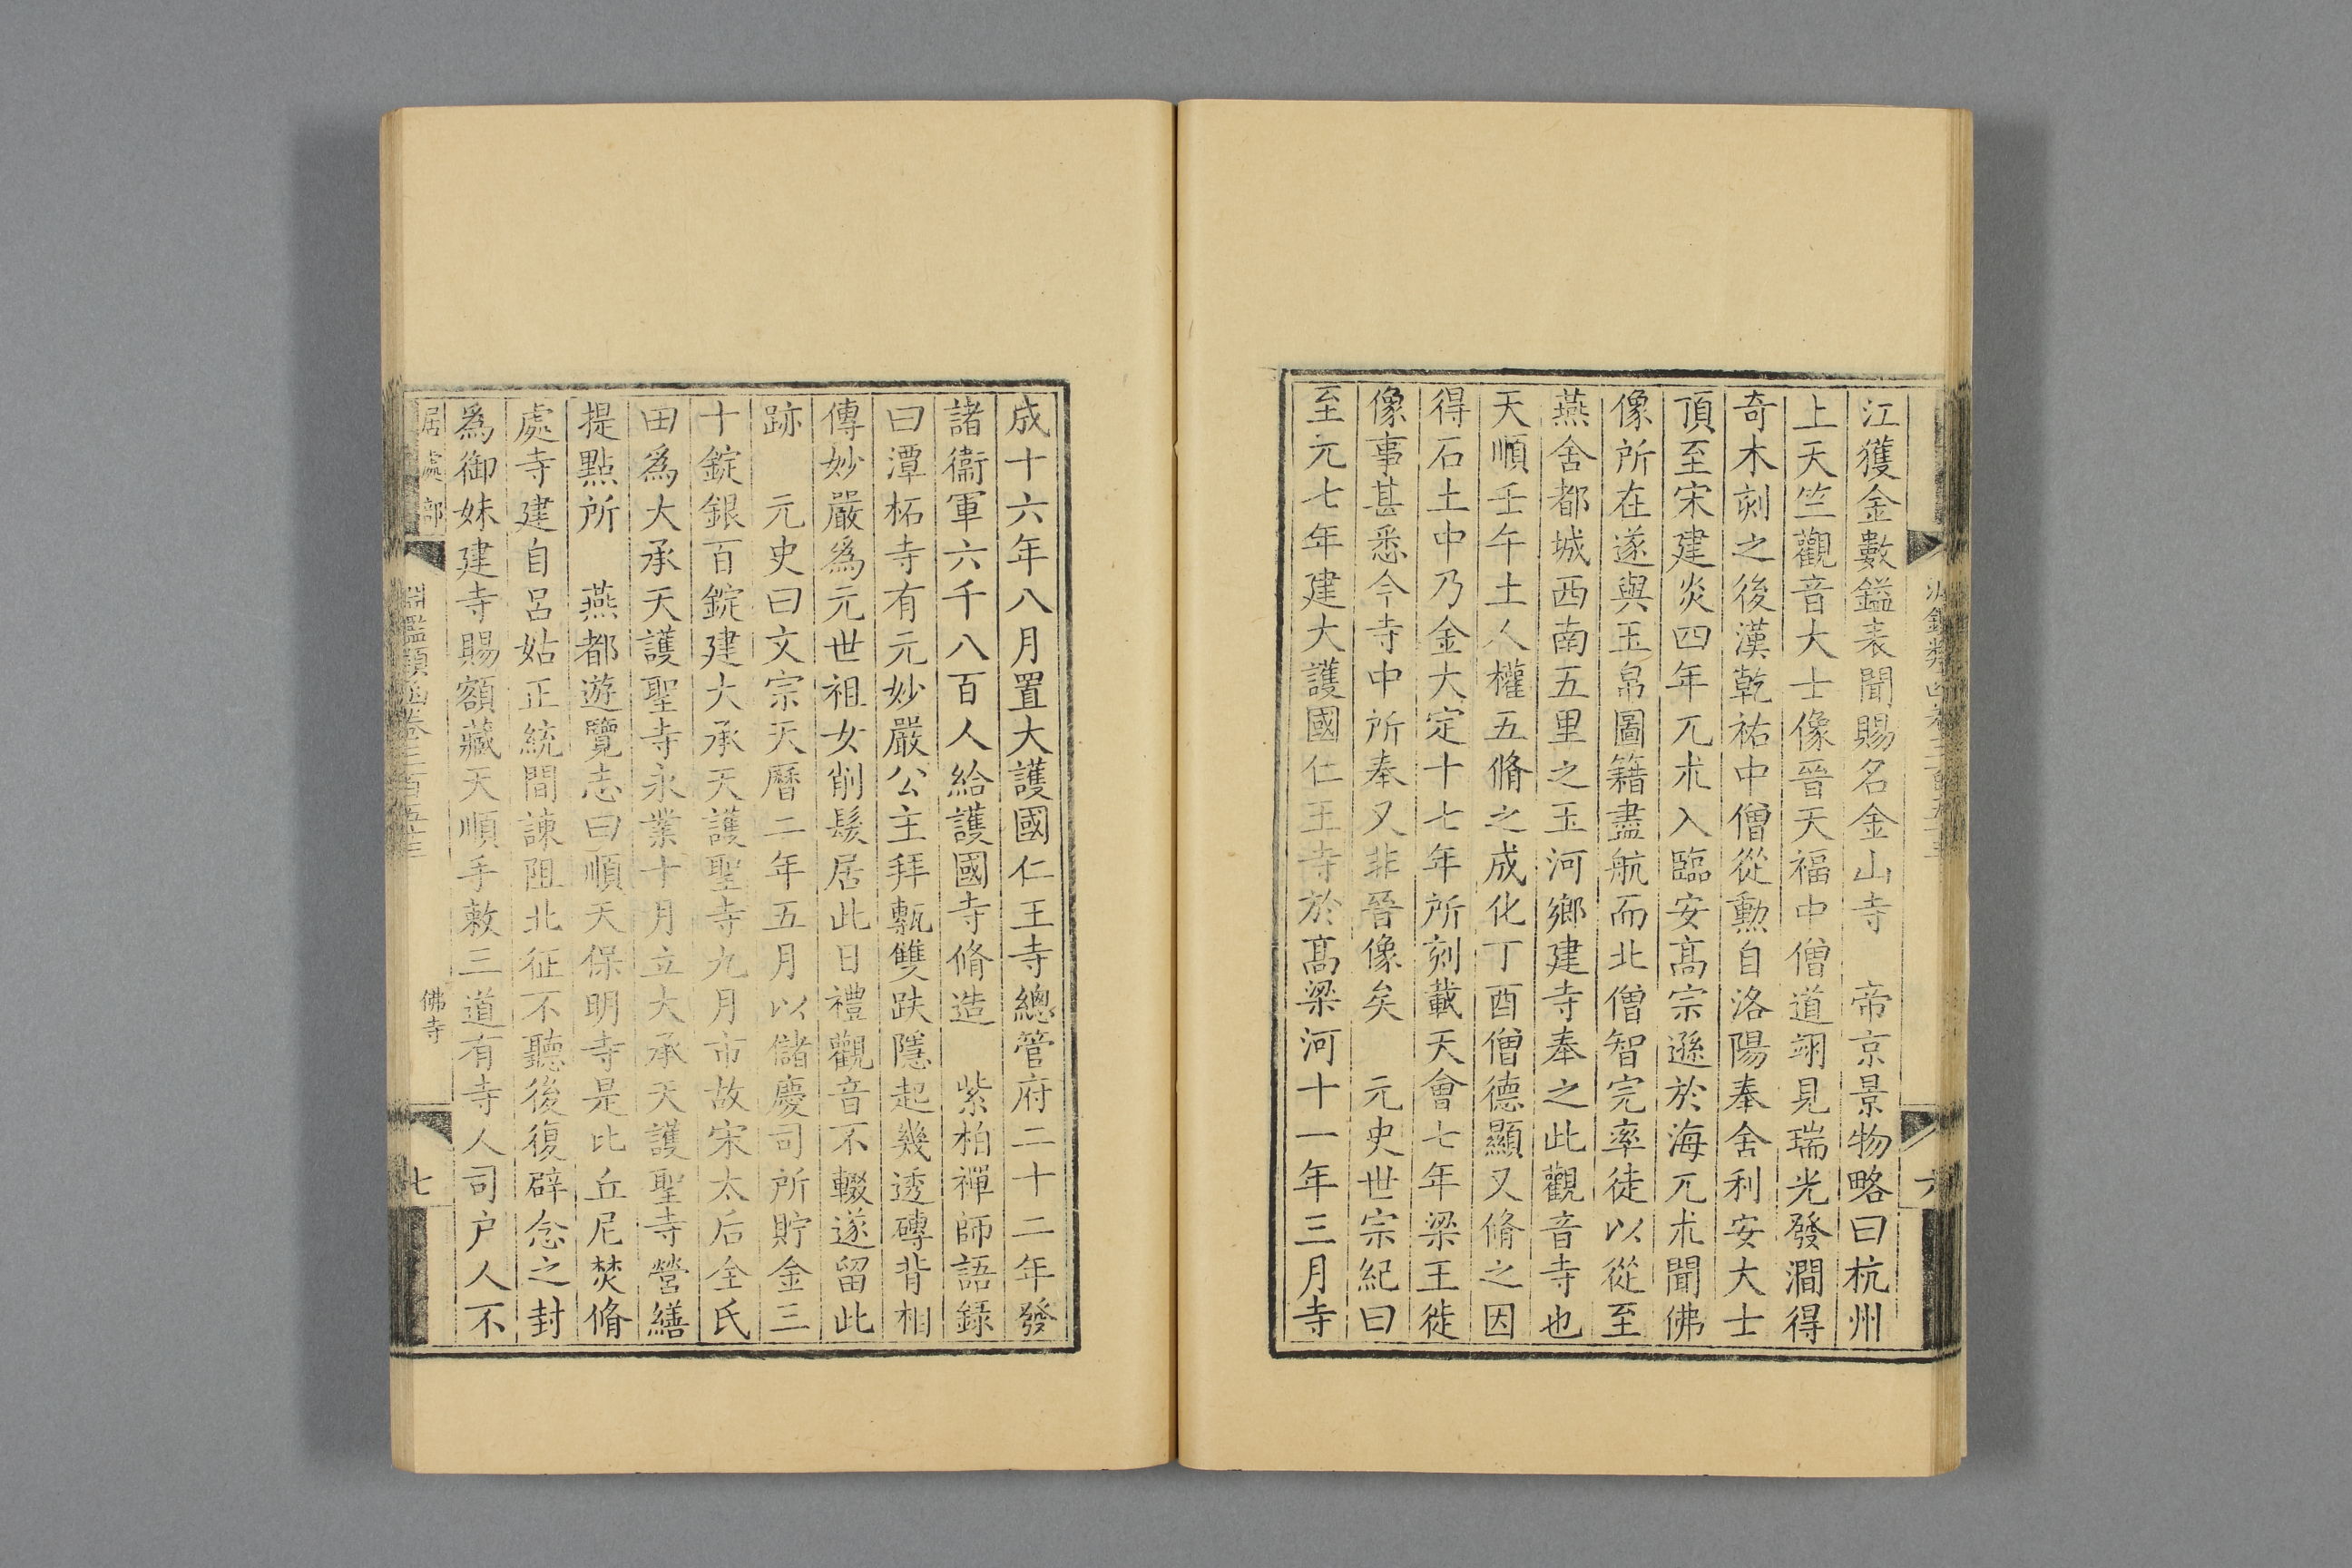 江獲金數鎰表聞賜名金山寺　帝京景物略曰杭州
上天竺觀音大士像晉天福中僧道翊見瑞光發澗得
奇木刻之後漢乾祐中僧從勲自洛陽奉舍利安大士
頂至宋建炎四年兀朮入臨安髙宗遜於海兀朮聞佛
像所在遂與玉帛圖籍盡航而北僧智完率徒以從至
燕舍都城西南五里之玉河鄉建寺奉之此觀音寺也
天順壬午土人權五脩之成化丁酉僧德顯又脩之因
得石土中乃金大定十七年所刻載天會七年梁王徙
像事甚悉今寺中所奉又非晉像矣　元史世宗紀曰
至元七年建大護國仁王寺於髙梁河十一年三月寺
六
成十六年八月置大護國仁王寺總管府二十二年發
諸衞軍六千八百人給護國寺脩造　紫柏禪師語録
曰潭柘寺有元妙嚴公主拜甎雙趺隱起幾透磚背相
傳妙嚴爲元世祖女削髮居此日禮觀音不輟遂留此
跡　元史曰文宗天曆二年五月以儲慶司所貯金三
十錠銀百錠建大承天護聖寺九月市故宋太后全氏
田爲大承天護聖寺永業十月立大承天護聖寺營繕
提點所　燕都遊覽志曰順天保明寺是比丘尼焚脩
處寺建自呂姑正統間諫阻北征不聽後復辟念之封
爲御妹建寺賜額藏天順手敕三道有寺人司户人不
居處部
淵鑑類函卷三百五十三
佛寺
七